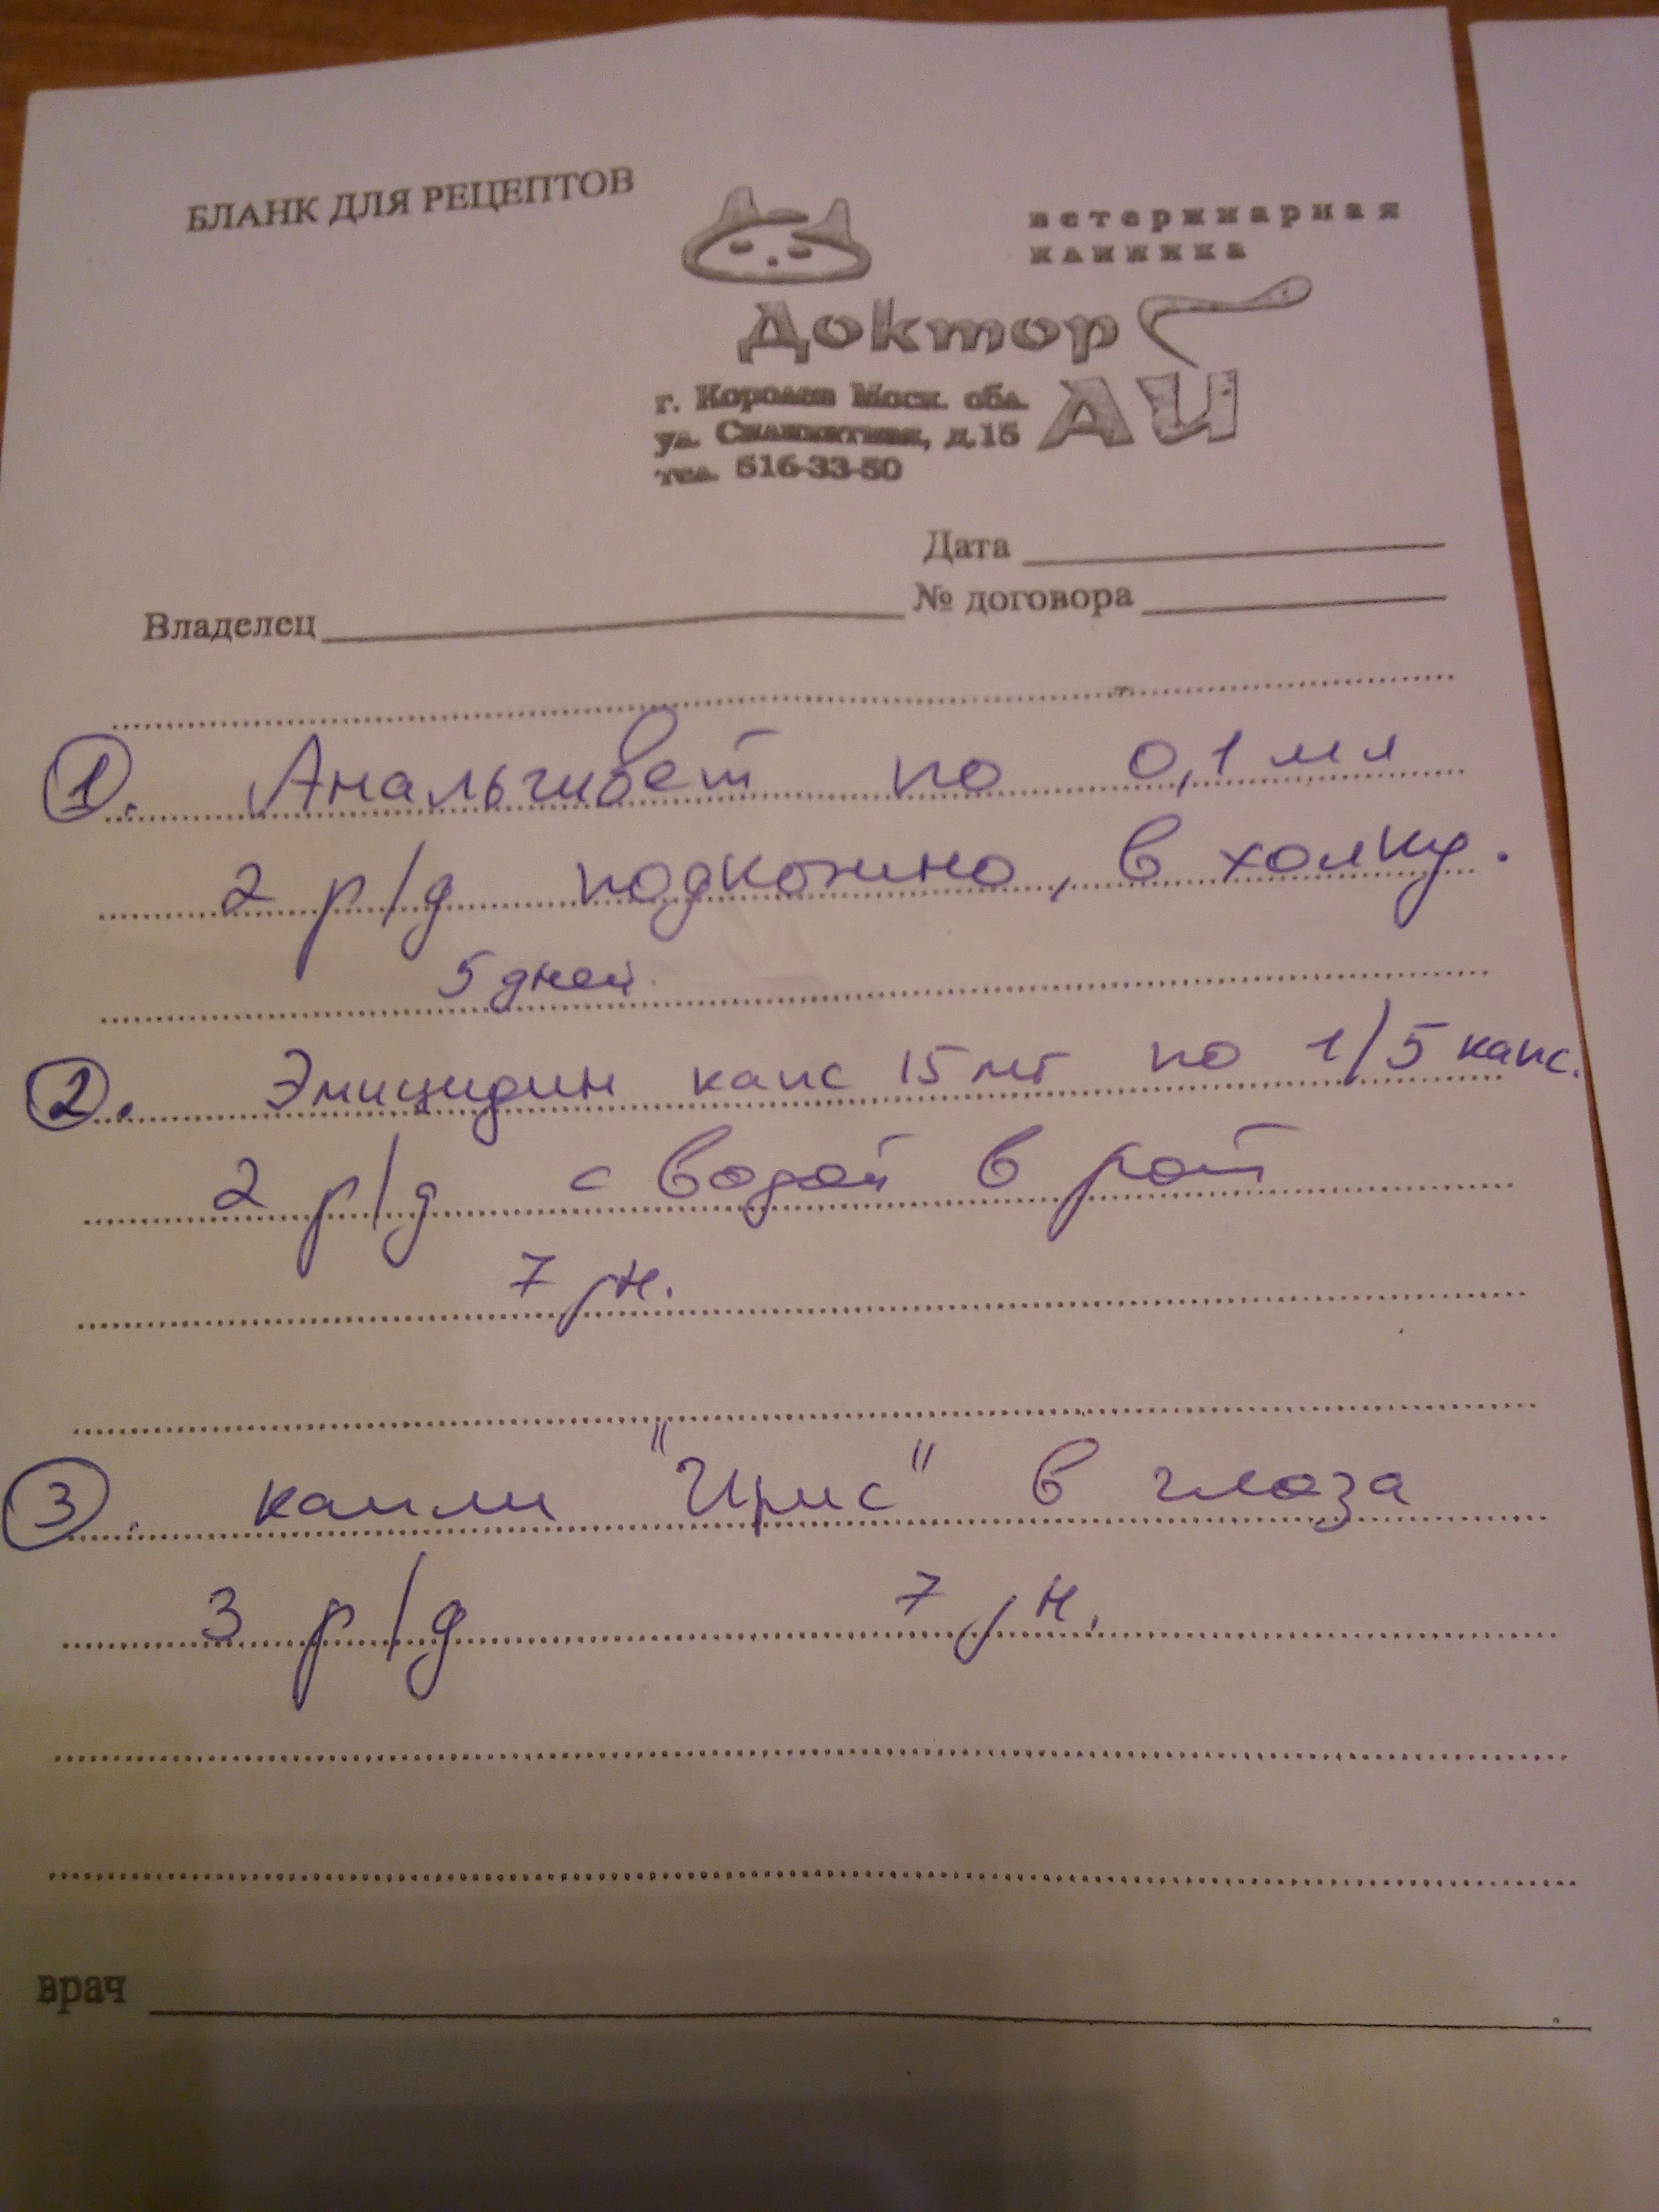 БЛАНК ДЛЯ РЕЦЕПТОВ
ветеринарная
клиника
Доктор
АЙ
г. Королев Моск. обл.
ул. д.15
тел. 516-33-50
Дата
Владелец № договора
1. Анальгивет по 0,1 мл
2 р/д подкожно, в холку.
5 дней
2. Эмицидин капс 15 мг по 1/5 капс.
2 р/д с водой в рот
7 дн.
3. капли "Ирис" в глаза
3 р/д 7 дн.
врач